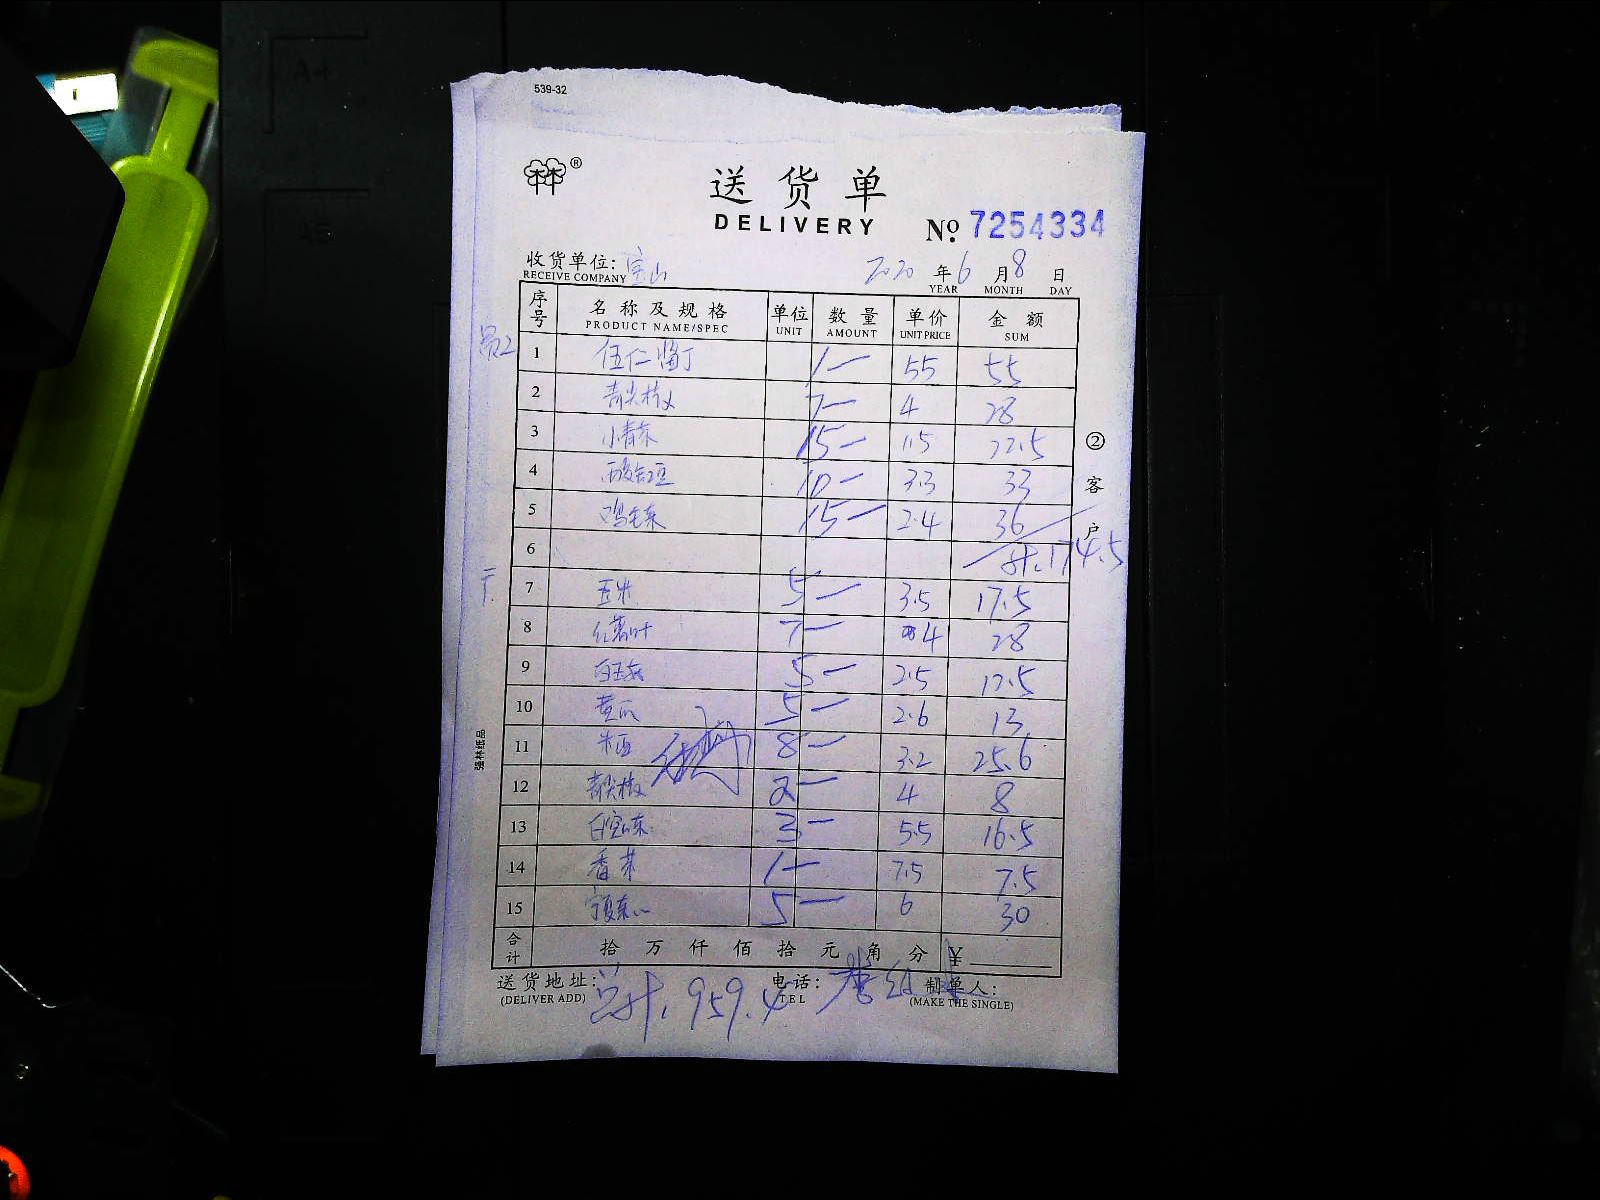 539-32
林®
送货单
DELIVERY
№ 7254334
收货单位: 宝山 2020 年 6 月 8 日
RECEIVE COMPANY YEAR MONTH DAY
序号 名称及规格 单位 数量 单价 金额
PRODUCT NAME/SPEC UNIT AMOUNT UNIT PRICE SUM
1 伍仁酱丁 1— 55 55
2 青尖椒 7— 4 28
3 小青菜 15— 1.5 22.5
4 酸豇豆 10— 3.3 33
5 鸡毛菜 15— 2.4 36
6 计.174.5
7 玉米 5— 3.5 17.5
8 红薯叶 7— 4 28
9 白玉菇 5— 2.5 12.5
10 黄瓜 5— 2.6 13
11 8— 3.2 25.6
12 青尖椒 2— 4 8
13 白空菜 3— 5.5 16.5
14 香菜 1— 7.5 7.5
15 5— 6 30
合计 拾 万 仟 佰 拾 元 角 分 ¥
送货地址: 电话: 制单人:
(DELIVER ADD) TEL (MAKE THE SINGLE)
总计.959.4
②客户
强林纸品